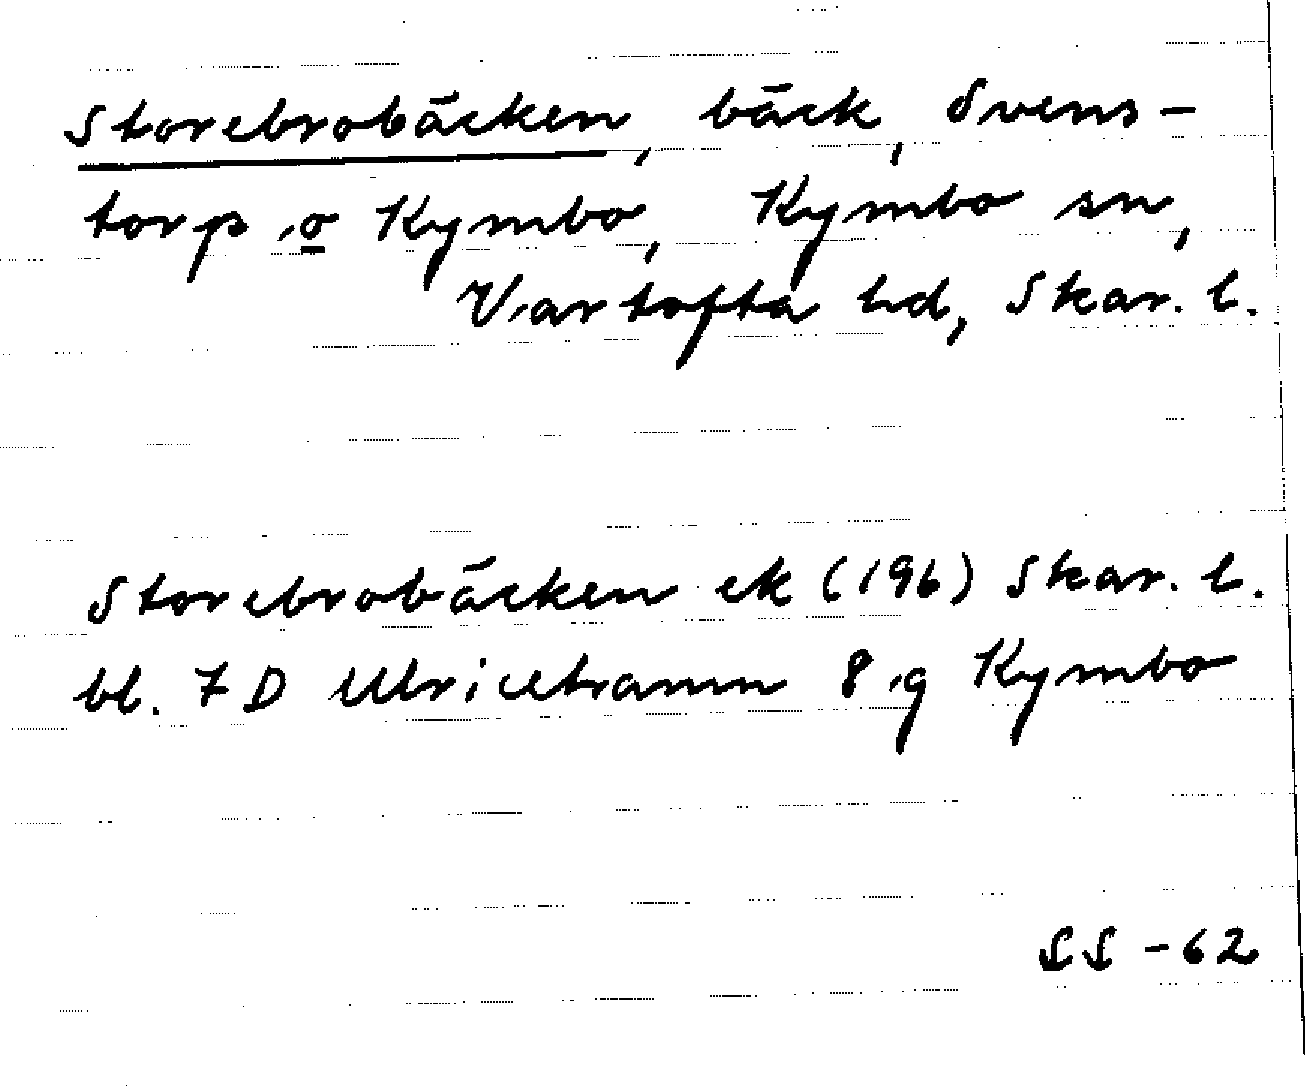 Storebrobäcken, bäck, Svens-
torp o Kymbo, Kymbo sn,
Vartofta hd, Skar. l.
Storebrobäcken ek (196) Skar. l.
bl. 7 D Ulricehamn 8 g Kymbo
SS -62